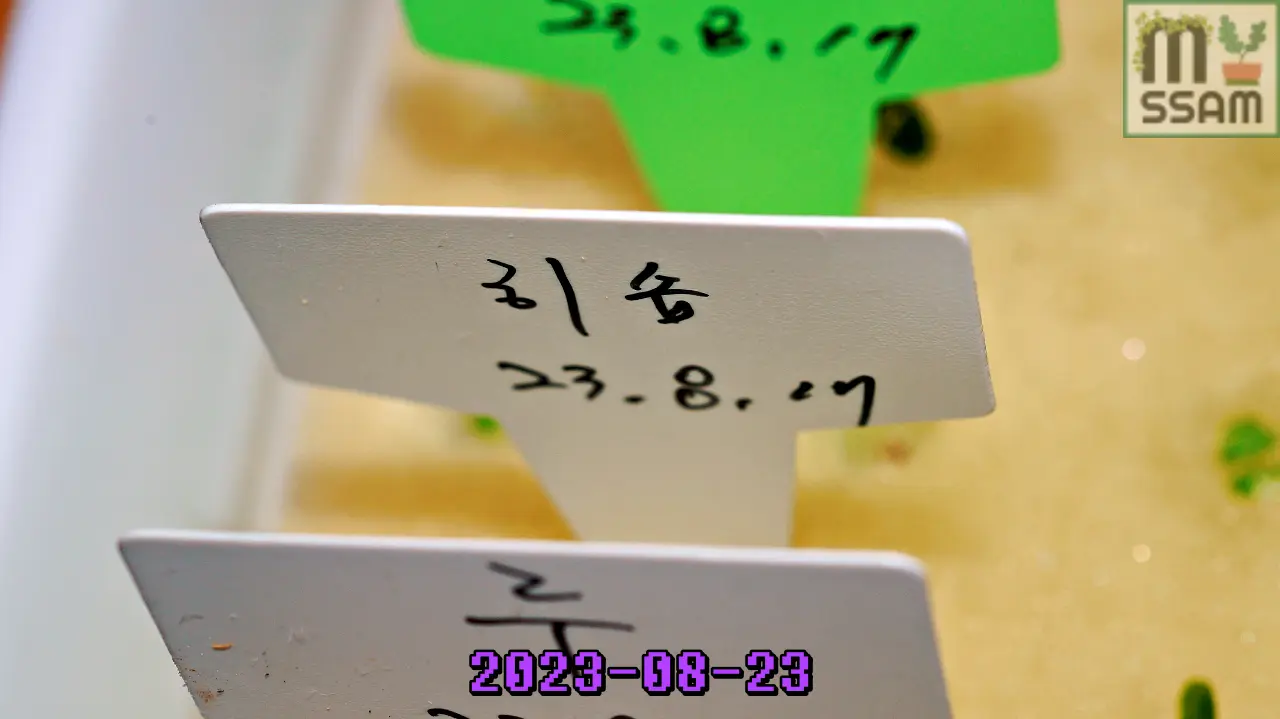 23. 8. 17
M
SSAM
히솝
23. 8. 17
루
2023-08-23